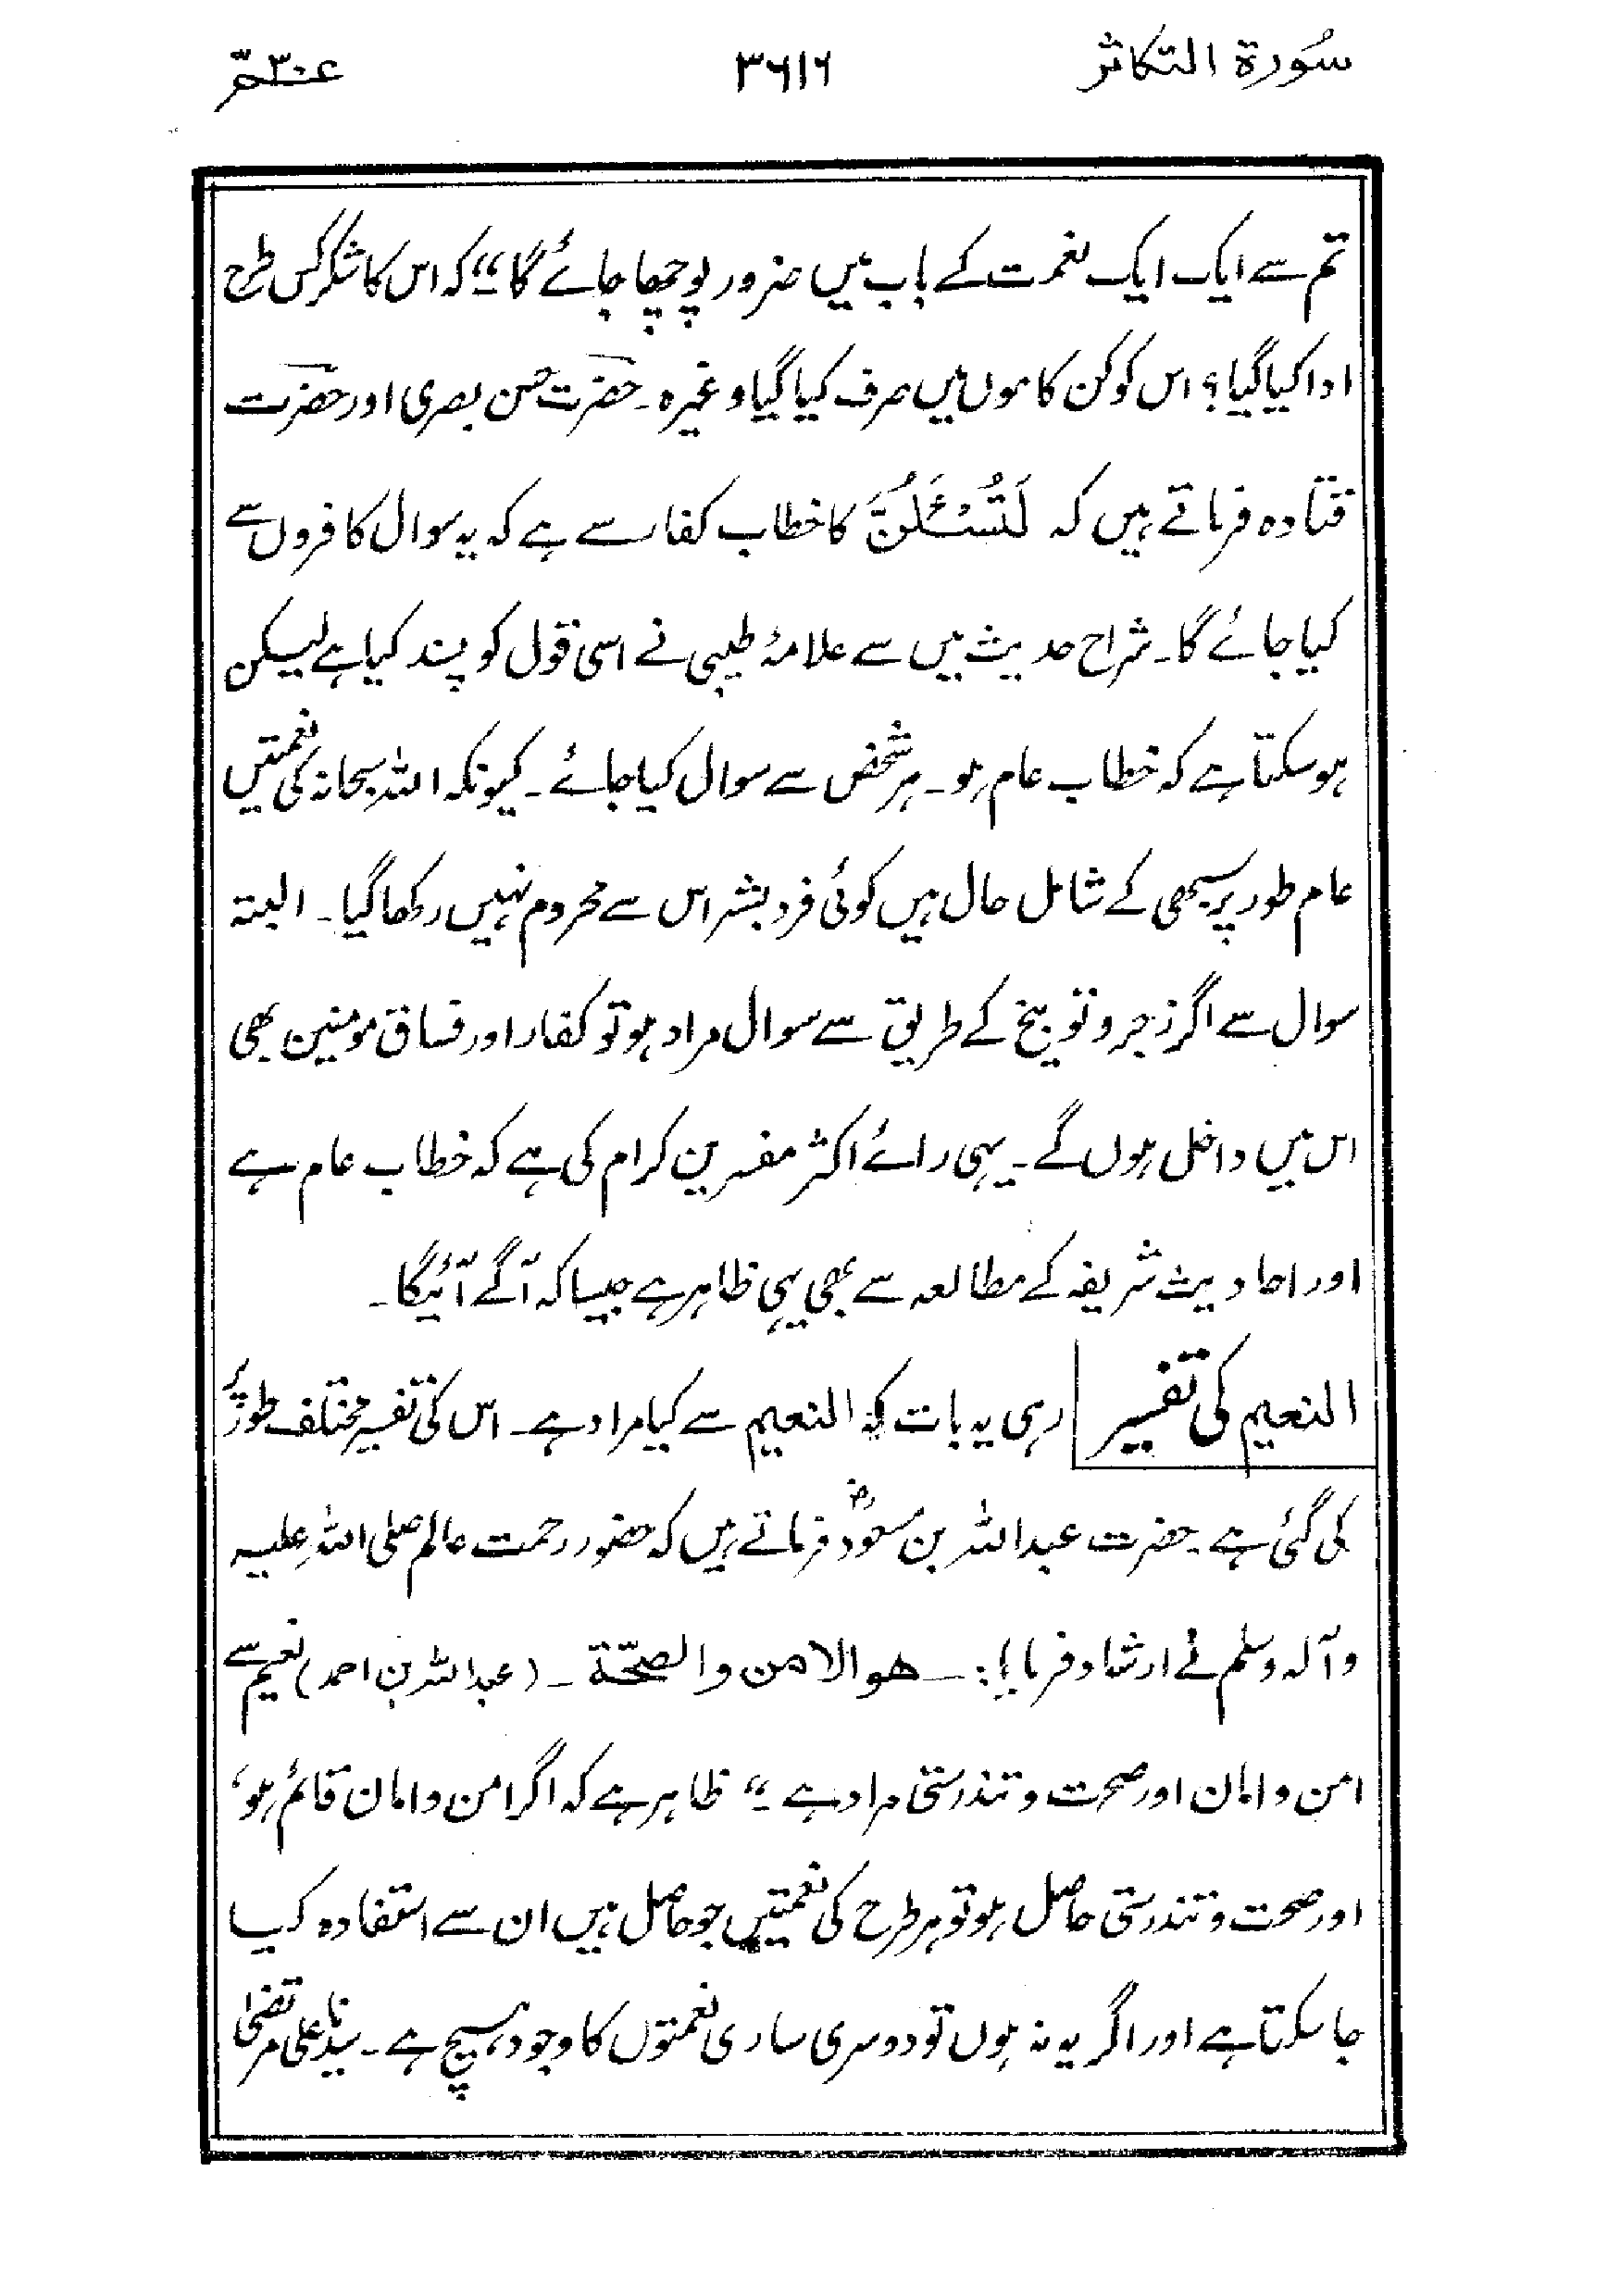 سُورة التكاثر
۳۶۱۶
عمّ ۳۰
تم سے ایک ایک نعمت کے باب میں ضرور پوچھا جائے گا“ کہ اس کا شکر کس طرح
ادا کیا گیا؟ اس کو کن کاموں میں صرف کیا گیا وغیرہ۔ حضرت حسن بصری اور حضرت
قتادہ فرماتے ہیں کہ لَتُسْئَلُنَّ کا خطاب کفار سے ہے کہ یہ سوال کافروں سے
کیا جائے گا۔ شراح حدیث میں سے علامۂ طیبی نے اسی قول کو پسند کیا ہے لیکن
ہو سکتا ہے کہ خطاب عام ہو۔ ہر شخص سے سوال کیا جائے۔ کیونکہ اللہ سبحانہ کی نعمتیں
عام طور پر سبھی کے شامل حال ہیں کوئی فرد بشر اس سے محروم نہیں رکھا گیا۔ البتہ
سوال سے اگر زجر و توبیخ کے طریق سے سوال مراد ہو تو کفار اور فساق مومنین بھی
اس میں داخل ہوں گے۔ یہی رائے اکثر مفسرین کرام کی ہے کہ خطاب عام ہے
اور احادیث شریفہ کے مطالعہ سے بھی یہی ظاہر ہے جیسا کہ آگے آئیگا۔
النعیم کی تفسیر رہی یہ بات کہ النعیم سے کیا مراد ہے۔ اس کی تفسیر مختلف طور پر
کی گئی ہے۔ حضرت عبداللہ بن مسعودؓ فرماتے ہیں کہ حضور رحمت عالم صلی اللہ علیہ
وآلہ وسلم نے ارشاد فرمایا:۔ هو الامن والصحّة ۔ (عبداللہ بن احمد) نعیم سے
امن و امان اور صحت و تندرستی مراد ہے۔“ ظاہر ہے کہ اگر امن و امان قائم ہو،
اور صحت و تندرستی حاصل ہو تو ہر طرح کی نعمتیں جو حاصل ہیں ان سے استفادہ کیا
جا سکتا ہے اور اگر یہ نہ ہوں تو دوسری ساری نعمتوں کا وجود ہیچ ہے۔ سیدنا علی مرتضیٰ